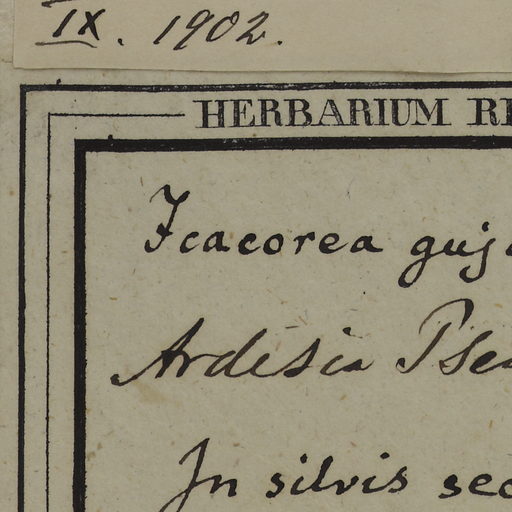 IX. 1902.
HERBARIUM RE
Icacorea guja
Ardisia Pseu
In silvis sec